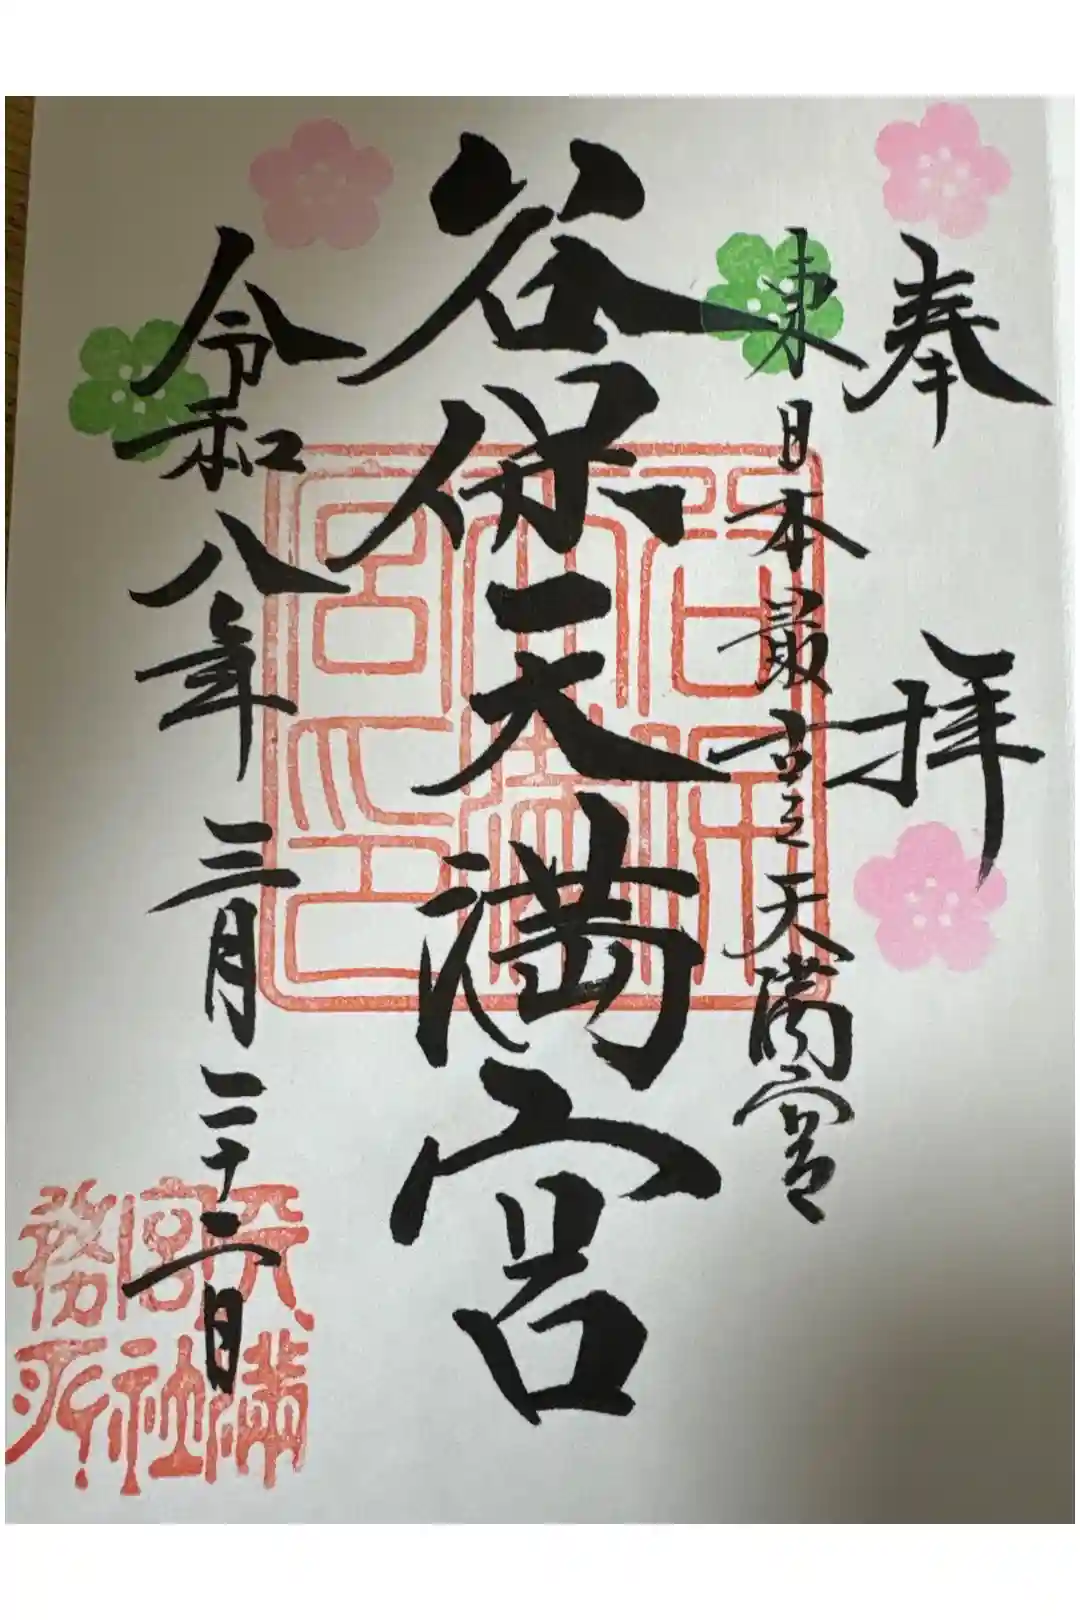 奉拝
東日本最古之天満宮
谷保天満宮
谷保
天満
宮印
令和八年三月二十二日
天満
宮社
務所